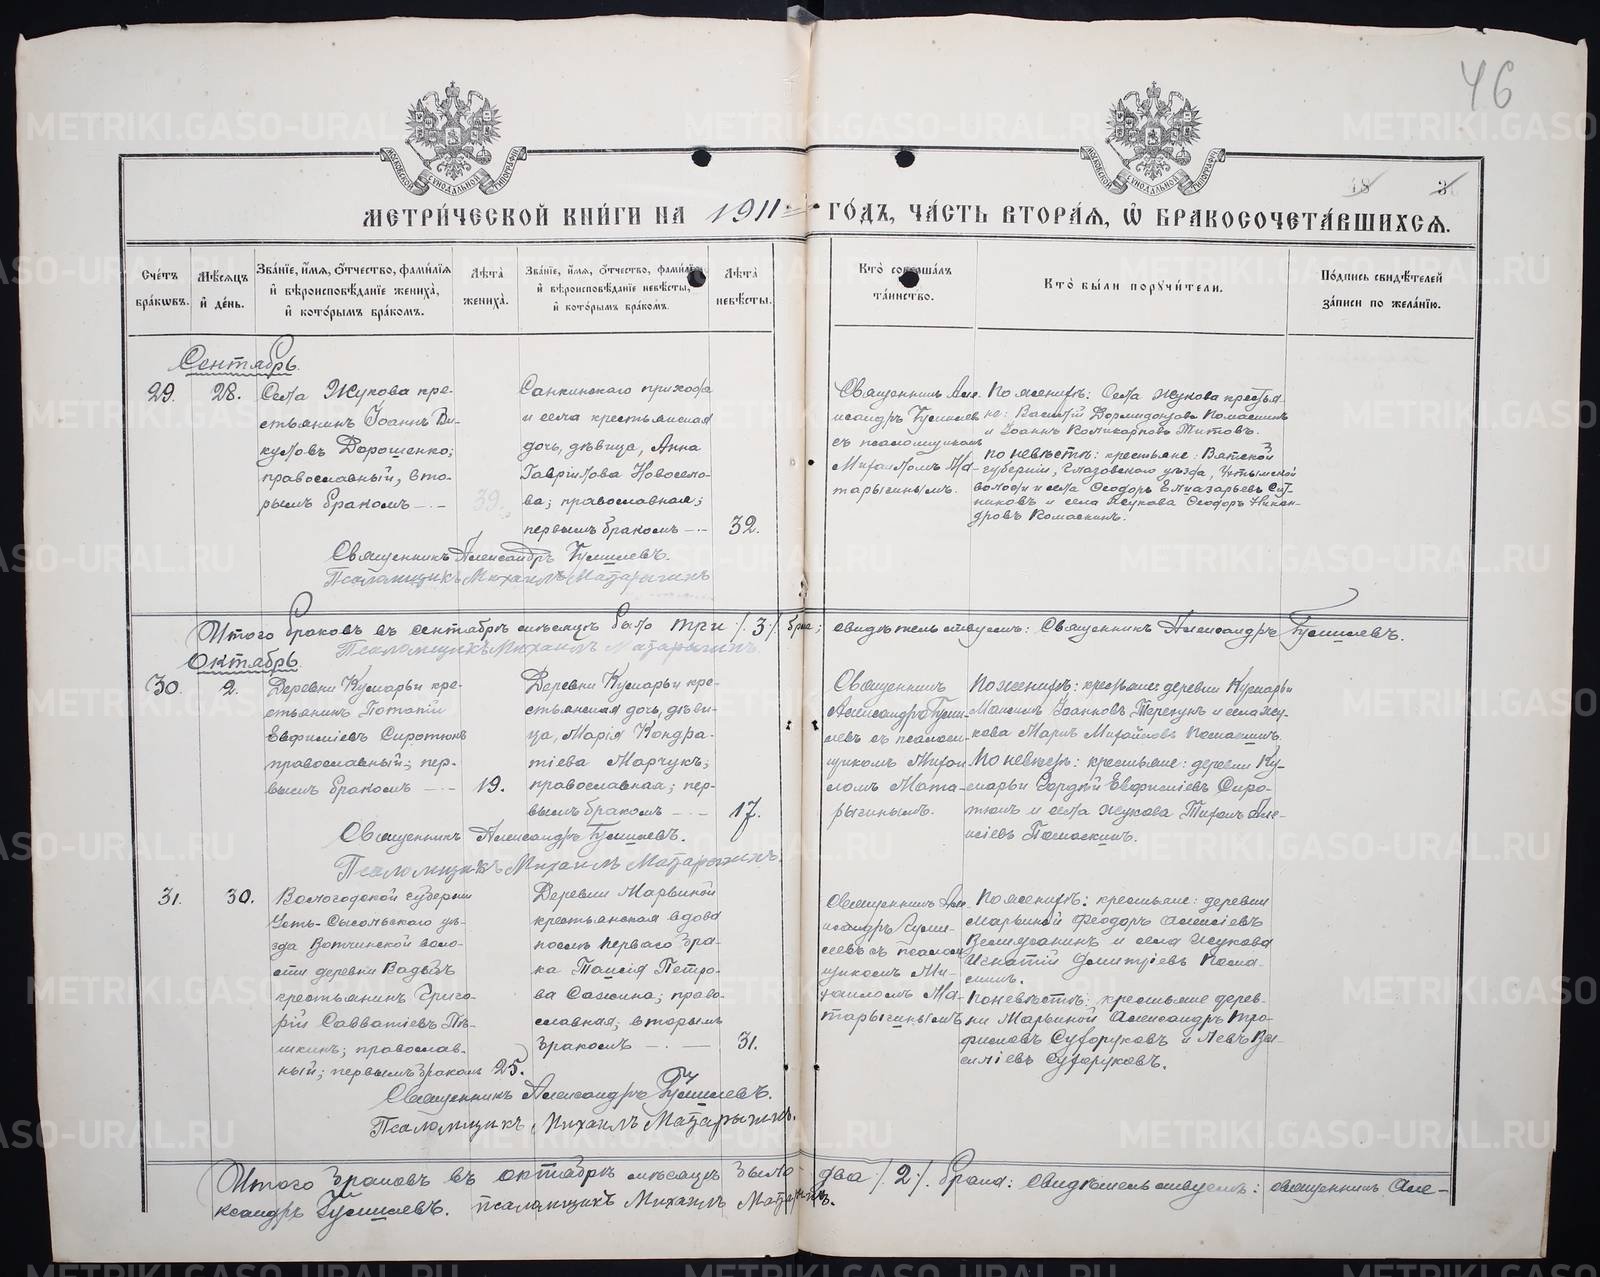 46
МОСКОВСКОЙ СѴНОДАЛЬНОЙ ТИПОГРАФІИ
МОСКОВСКОЙ СѴНОДАЛЬНОЙ ТИПОГРАФІИ
18 3
МЕТРИ́ЧЕСКОЙ КНИ́ГИ НА 1911 ГО́ДЪ, ЧА́СТЬ ВТОРА́Я, Ѽ БРАКОСОЧЕТА́ВШИХСЯ.
Сче́тъ бра́ковъ.
Мѣ́сяцъ и́ де́нь.
Зва́нїе, и́мя, ѻ́тчество, фами́лїя и́ вѣроисповѣ́данїе жениха̀, и́ кото́рымъ бра́комъ.
Лѣ́та жениха̀.
Зва́нїе, и́мя, ѻ́тчество, фами́лїя и́ вѣроисповѣ́данїе невѣ́сты, и́ кото́рымъ бра́комъ.
Лѣ́та невѣ́сты.
Кто̀ соверша́лъ та́инство.
Кто̀ бы́ли порꙋчи́тели.
По́дпись свидѣ́телей за́писи по жела́нїю.
Сентябрь.
29.
28.
Села Жукова кре-
стьянинъ Іоаннъ Ви-
куловъ Дорошенко;
православный, вто-
рымъ бракомъ
39.
Санкинскаго прихода
и села крестьянская
дочь, дѣвица, Анна
Гавріилова Новосело-
ва; православная;
первымъ бракомъ
32.
Священникъ Але-
ксандръ
съ псаломщикомъ
Михаиломъ Ма-
тарыгинымъ.
По женихѣ: Села Жукова крестья-
не: Василій Дормидонтовъ
и Іоаннъ Поликарповъ Титовъ.
по невѣстѣ: крестьяне: Вятской
губерніи, Глазовскаго уѣзда,
волости и села Ѳеодоръ Елиазарьевъ
и села Жукова Ѳеодоръ Никан-
дровъ
Священникъ Александръ
Псаломщикъ Михаилъ Матарыгинъ
Итого браковъ въ сентябрѣ мѣсяцѣ было три /3/ свидѣтельствуемъ: Священникъ Александръ
Псаломщикъ Михаилъ Матарыгинъ.
Октябрь.
30.
2.
Деревни Кумарьи кре-
стьянинъ Потапій
Евфиміевъ Сиротюкъ
православный; пер-
вымъ бракомъ
19.
Деревни Кумарьи кре-
стьянская дочь, дѣви-
ца, Марія Кондра-
тіева Марчукъ;
православная; пер-
вымъ бракомъ
17.
Священникъ
Александръ
съ псалом-
щикомъ Михаи-
ломъ Мата-
рыгинымъ.
По женихѣ: крестьяне: деревни Кумарьи
Максимъ Іоанновъ и села Жу-
кова Маркъ Михайловъ
По невѣстѣ: крестьяне: деревни Ку-
марьи Сергій Евфиміевъ Сиро-
тюкъ и села Жукова Але-
ксіевъ
Священникъ Александръ
Псаломщикъ Михаилъ Матарыгинъ.
31.
30.
Вологодской губерніи
Усть-Сысольскаго уѣ-
зда Вотчинской воло-
сти деревни Вадыбъ
крестьянинъ Григо-
рій Савватіевъ Пѣ-
шкинъ; православ-
ный; первымъ бракомъ
25.
Деревни Марьиной
крестьянская вдова
послѣ перваго бра-
ка Таисія Петро-
ва Сажина; право-
славная; вторымъ
бракомъ
31.
Священникъ Але-
ксандръ
съ псалом-
щикомъ Ми-
хаиломъ Ма-
тарыгинымъ
По женихѣ: крестьяне: деревни
Марьиной Феодоръ Алексіевъ
и села Жукова
Игнатій Димитріевъ
По невѣстѣ: крестьяне дерев-
ни Марьиной Александръ Тро-
фимовъ Сухоруковъ и Левъ Ва-
силіевъ Сухоруковъ.
Священникъ Александръ
Псаломщикъ Михаилъ Матарыгинъ.
Итого браковъ въ октябрѣ мѣсяцѣ было два /2/ брака: свидѣтельствуемъ: священникъ Але-
ксандръ псаломщикъ Михаилъ Матарыгинъ.
METRIKI.GASO-URAL.RU